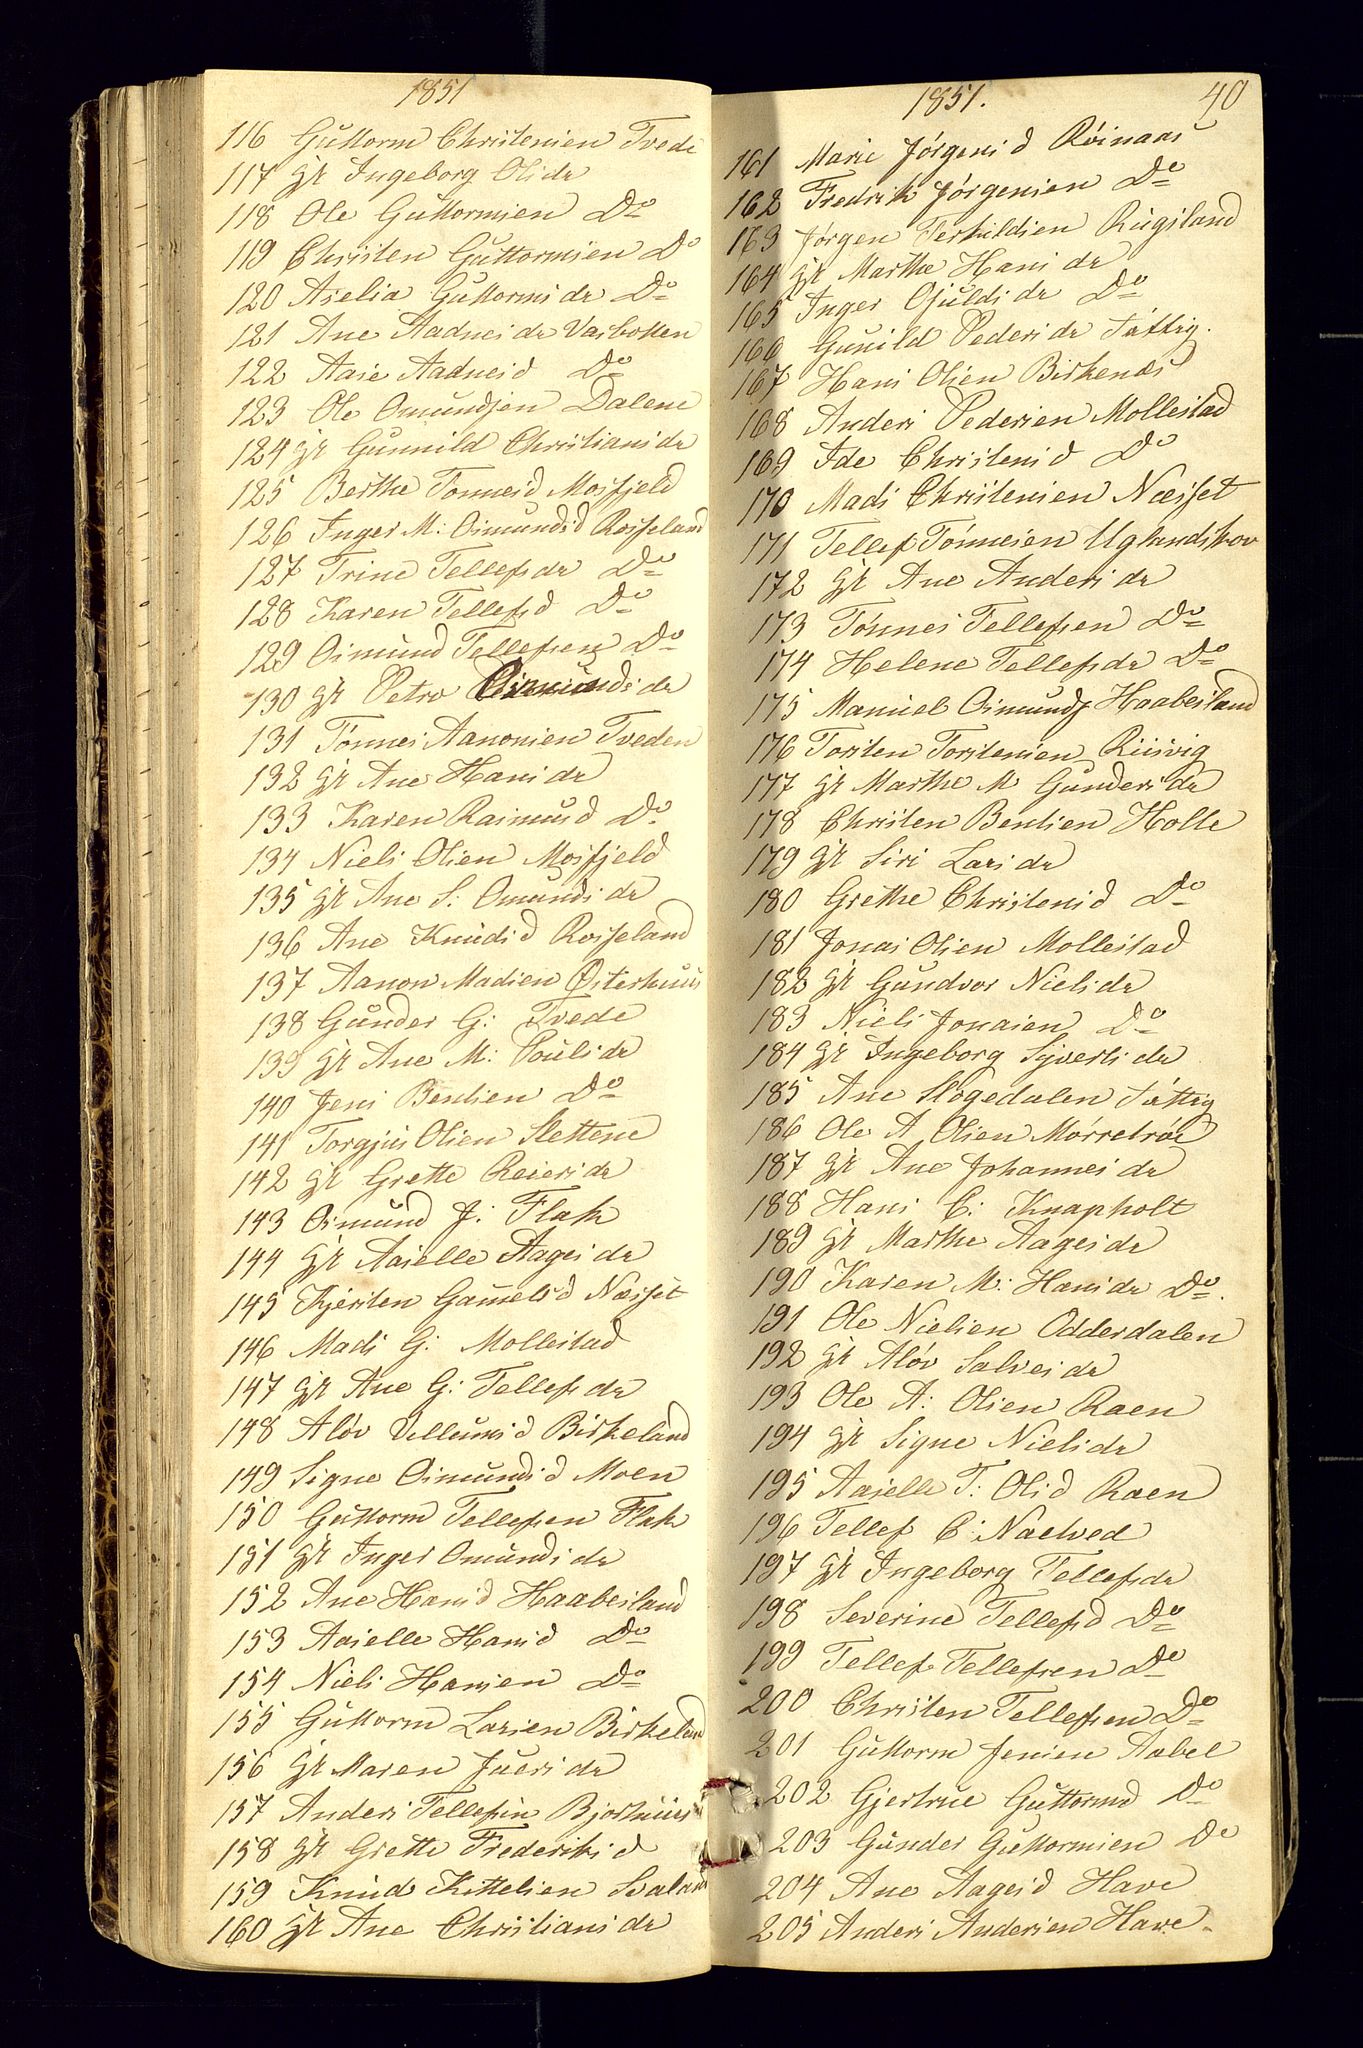 1851
116 Guttorm Christensen Tvede
117 Gr Ingeborg Olsdr
118 Ole Guttormsen Do
119 Christen Guttormsen Do
120 Aselia Guttormsdr Do
121 Ane Aadnesdr Vasbotten
122 Aase Aadnesd Do
123 Ole Omundsen Dalene
124 Gr Gunnild Christiansdr
125 Berthe Tonnesd Mosfjeld
126 Inger M: Osmundsd Rosseland
127 Trine Tellefsdr Do
128 Karen Tellefsd Do
129 Osmund Tellefsen Do
130 Gr Petro Osmundsdr
131 Tönnes Aanonsen Tveden
132 Gr Ane Hansdr
133 Karen Rasmusd Do
134 Niels Olsen Mosfjeld
135 Gr Ane S: Omundsdr
136 Ane Knudsd Rosseland
137 Aanon Madsen Østerhuus
138 Gunder G: Tvede
139 Gr Ane M: Poulsdr
140 Jens Bentsen Do
141 Torgjus Olsen Slettene
142 Gr Grette Reiersdr
143 Osmund J: Flak
144 Gr Aaselle Aagesdr
145 Kjersten Gamelsd Næsset
146 Mads G: Mollestad
147 Gr Ane G: Tellefsdr
148 Aslöv Vellumsd Birkeland
149 Signe Osmundsd Moen
150 Guttorm Tellefsen Flak
151 Gr Inger Omundsdr
152 Ane Hansd Haabesland
153 Aaselle Hansd Do
154 Niels Hansen Do
155 Guttorm Larsen Birkeland
156 Gr Maren Juersdr
157 Anders Tellefsen Bjorhuus
158 Gr Grette Frederiksd
159 Knud Kittelsen Svaland
160 Gr Ane Christiansdr
1851. 40
161 Marie Jörgensd Röinaas
162 Fredrik Jörgensen Do
163 Jörgen Terkildsen Rugsland
164 Gr Marthe Hansdr
165 Inger Ojuldsdr Do
166 Gunild Pedersdr Fattig.
167 Hans Olsen Birkenæs
168 Anders Pedersen Mollestad
169 Ide Christensd Do
170 Mads Christensen Næsset
171 Tellef Tönnesen Uglandskov
172 Gr Ane Andersdr
173 Tönnes Tellefsen Do
174 Helene Tellefsdr Do
175 Manuel Osmunds Haabesland
176 Torsten Torstensen Risvig
177 Gr Marthe M Gundersdr
178 Christen Bentsen Holte
179 Gr Siri Larsdr
180 Grethe Christensd Do
181 Jonas Olsen Mollestad
182 Gr Gundvor Nielsdr
183 Niels Jonasen Do
184 Gr Ingeborg Syvertsdr
185 Ane Slogedalen Fattig
186 Ole A Olsen Mörretröe
187 Gr Ane Johannesdr
188 Hans C: Knapholt
189 Gr Marthe Aagesdr
190 Karen M: Hansdr Do.
191 Ole Nielsen Odderdalen
192 Gr Aslöv Salvesdr
193 Ole A: Olsen Raen
194 Gr Signe Nielsdr
195 Aaselle T: Olsd Raen
196 Tellef C: Naelved
197 Gr Ingeborg Tellefsdr
198 Severine Tellefsd Do
199 Tellef Tellefsen Do
200 Christen Tellefsen Do
201 Guttorm Jensen Aabel
202 Gjertrue Guttormd Do
203 Gunder Guttormsen Do
204 Ane Aagesd Have
205 Anders Andersen Have